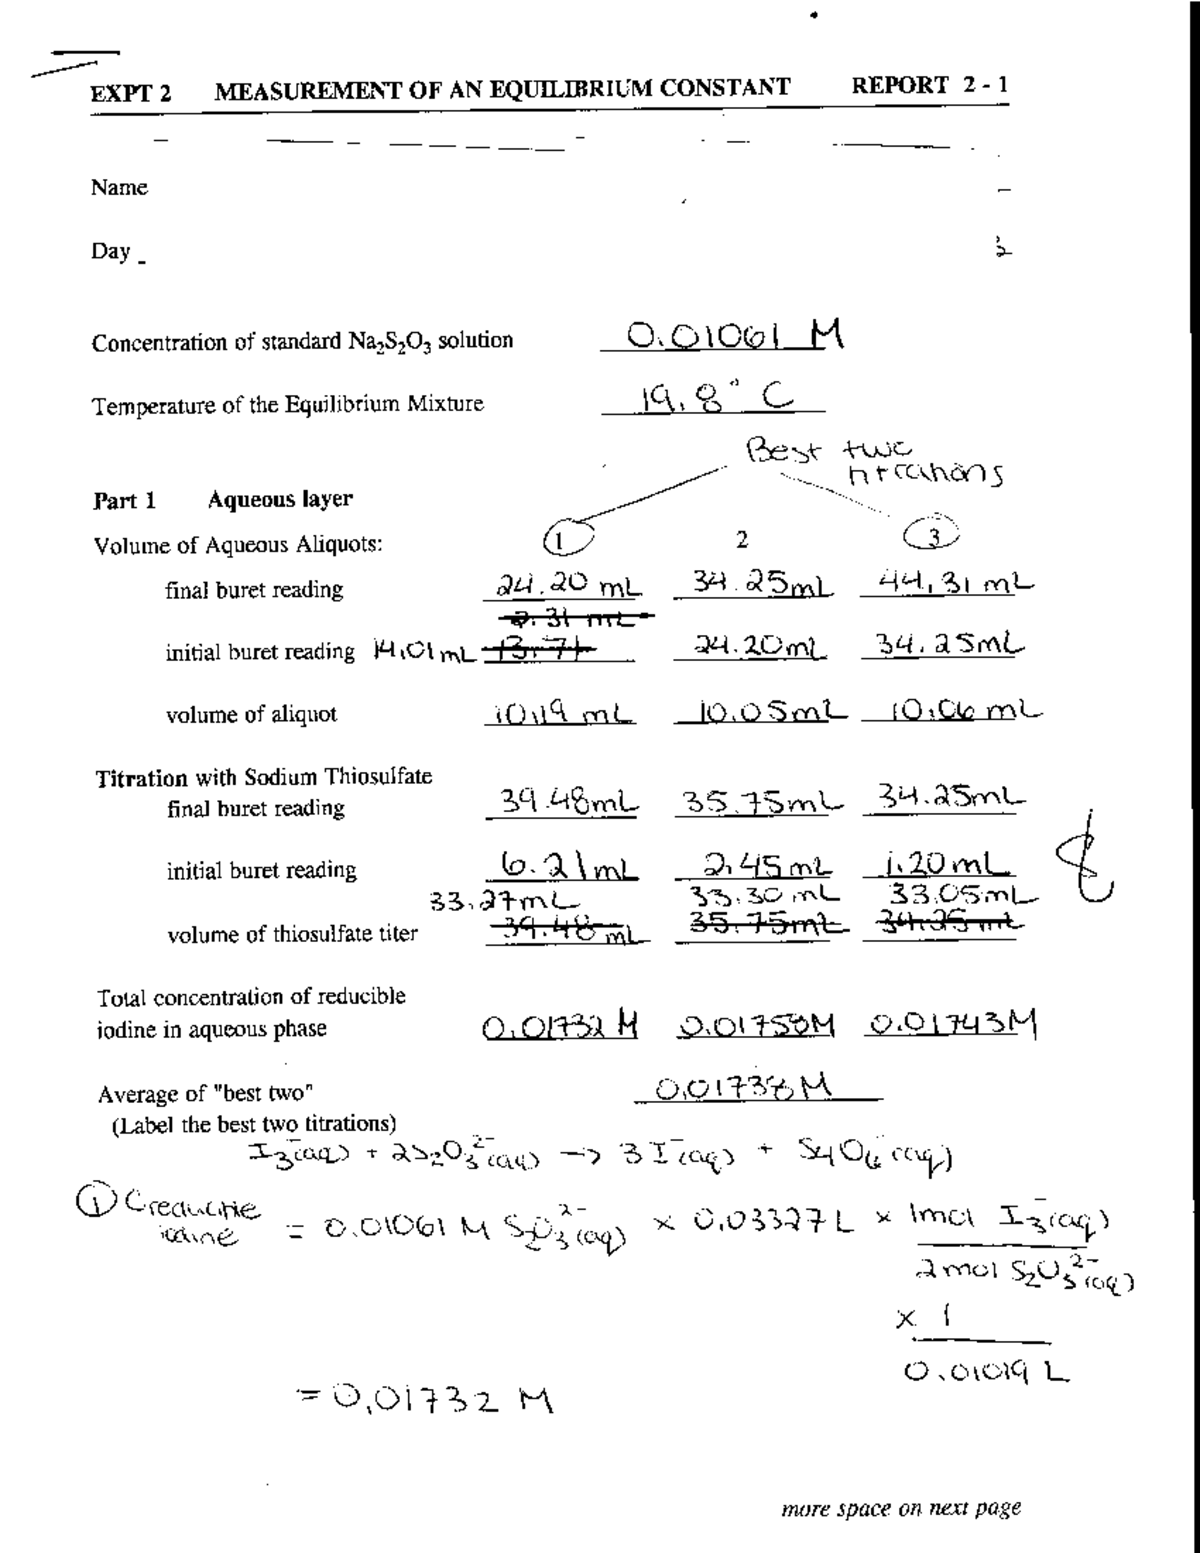 EXPT 2 MEASUREMENT OF AN EQUILIBRIUM CONSTANT REPORT 2 - 1
Name
Day
Concentration of standard Na₂S₂O₃ solution 0.01061 M
Temperature of the Equilibrium Mixture 19.8° C
Best two
titrations
Part 1 Aqueous layer
Volume of Aqueous Aliquots: 1 2 3
final buret reading 24.20 mL 34.25mL 44.31 mL
2.31 mL
initial buret reading 14.01mL 13.71 24.20mL 34.25mL
volume of aliquot 10.19 mL 10.05mL 10.06 mL
Titration with Sodium Thiosulfate
final buret reading 39.48mL 35.75mL 34.25mL
initial buret reading 6.21mL 2.45mL 1.20mL
33.27mL 33.30 mL 33.05mL
volume of thiosulfate titer 39.48 mL 35.75mL 34.25mL
8
Total concentration of reducible
iodine in aqueous phase 0.01732 M 0.01758M 0.01743M
Average of "best two" 0.01738M
(Label the best two titrations)
I₃⁻(aq) + 2S₂O₃²⁻(aq) → 3I⁻(aq) + S4O6⁻(aq)
① C reducible
iodine = 0.01061 M S₂O₃²⁻(aq) x 0.03327L x 1mol I₃⁻(aq)
2mol S₂O₃²⁻(aq)
x 1
0.01019 L
= 0.01732 M
more space on next page